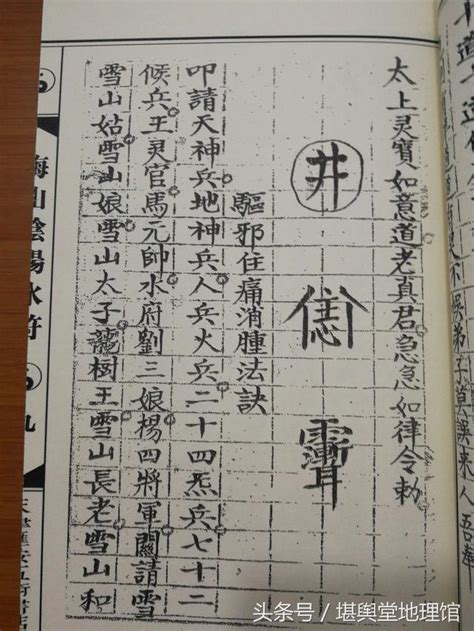 弟子莫誤來人
太上灵寶如意道老真君急急如律令勅
井
驅邪住痛消腫法訣
叩請天神兵地神兵人兵火兵二十四炁兵七十二
候兵王灵官馬元帥水府劉三娘楊四將軍關請雪
雪山姑雪山娘雪山太子龍樹王雪山長老雪山和
梅山陰陽水符 九
头条号 / 堪舆堂地理馆